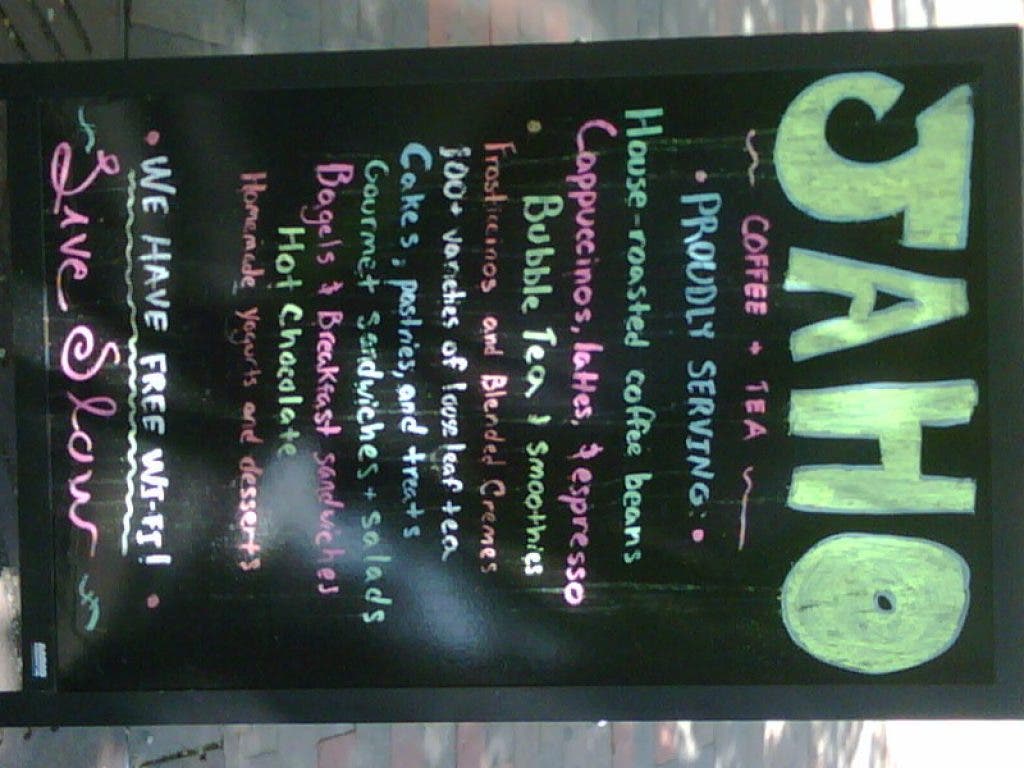 JAHO
~ COFFEE + TEA ~
• PROUDLY SERVING: •
House-roasted coffee beans
Cappuccinos, lattes, & espresso
Bubble Tea & smoothies
Frosticcinos and Blended Cremes
100+ varieties of loose leaf tea
Cakes, pastries, and treats
Gourmet sandwiches + salads
Bagels & Breakfast sandwiches
Hot Chocolate
Homemade yogurts and desserts
• WE HAVE FREE WI-FI! •
~ Live Slow ~